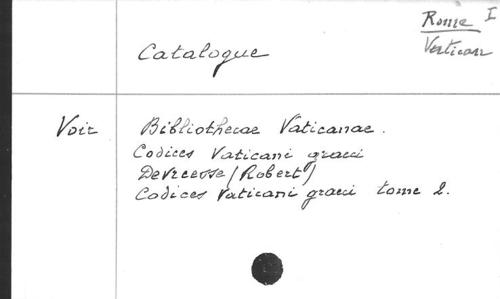 Rome I
Vatican
Catalogue
Voir Bibliothecae Vaticanae.
Codices Vaticani graeci
Devreesse (Robert)
Codices Vaticani graeci tome 2.